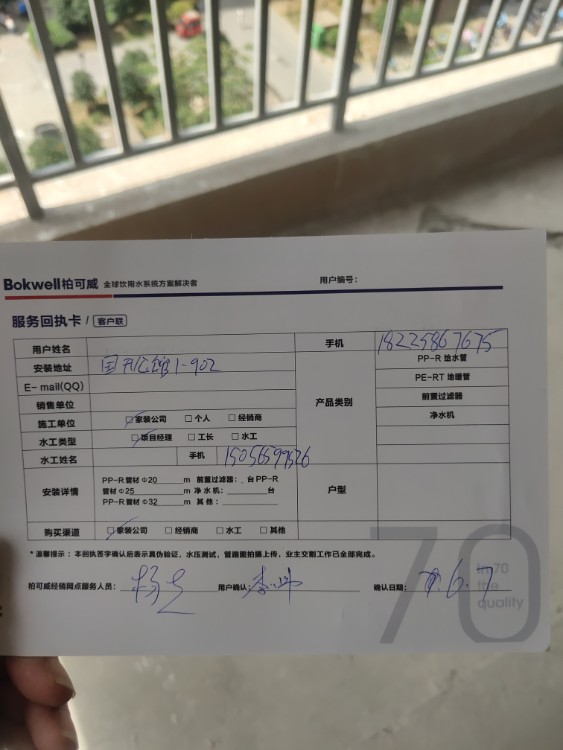 Bokwell柏可威 全球饮用水系统方案解决者 用户编号：
服务回执卡 / 客户联
用户姓名 手机 18225867675
安装地址 国 公馆1-902 PP-R 给水管
E-mail(QQ) PE-RT 地暖管
销售单位 产品类别 前置过滤器
施工单位 □家装公司 □个人 □经销商 净水机
水工类型 □项目经理 □工长 □水工
水工姓名 手机
安装详情 PP-R管材 Φ20 m 前置过滤器： 台 PP-R 户型
管材 Φ25 m 净水机： 台
PP-R管材 Φ32 m 其他：
购买渠道 □家装公司 □经销商 □水工 □其他
*温馨提示：本回执签字确认后表示真伪验证，水压测试，管路图拍摄上传，业主交割工作已全部完成。
柏可威经销网点服务人员： 用户确认： 确认日期： 6.7
70
in 70
the
quality